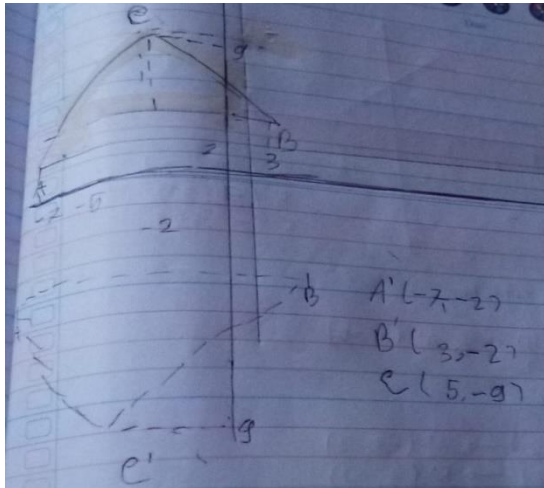 C
9
B
2 3
A
-7 -5
-2
B
A' (-7, -2)
B' ( 3, -2)
C ( 5, -9)
9
C'